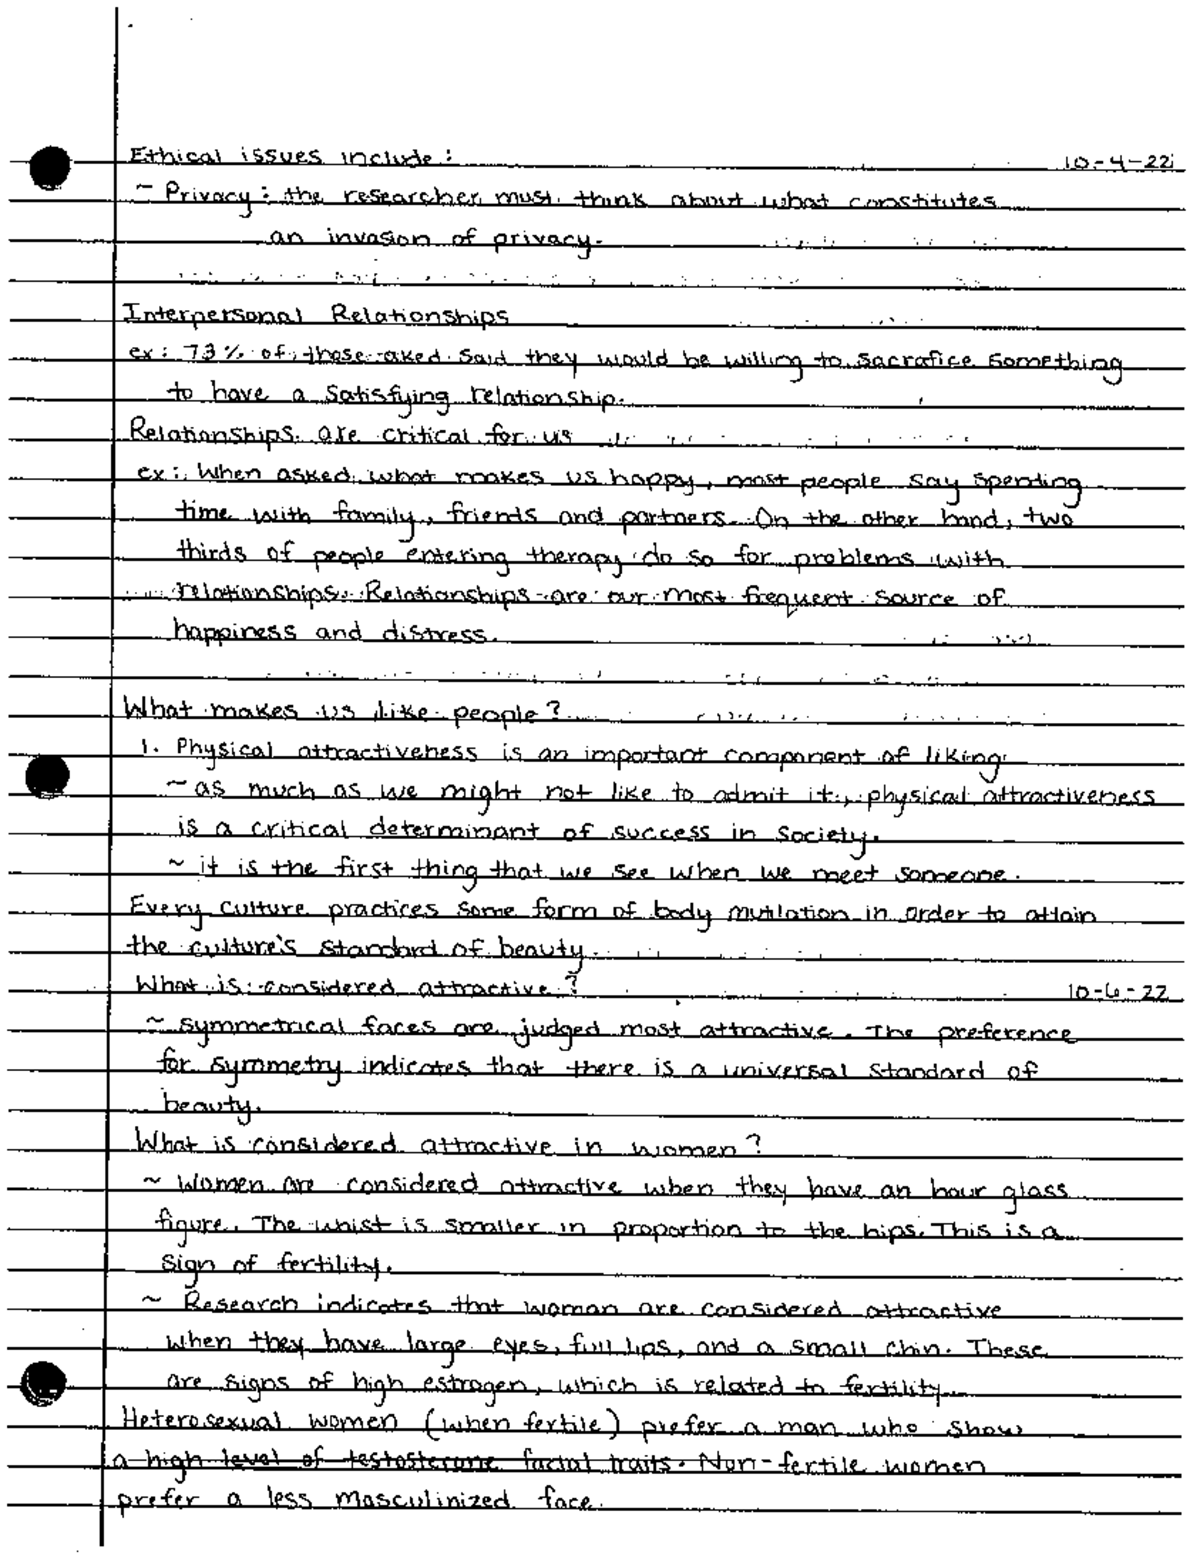 Ethical issues include: 10-4-22
~ Privacy: the researcher must think about what constitutes
an invasion of privacy.
Interpersonal Relationships
ex: 73% of those aked said they would be willing to sacrafice something
to have a satisfying relationship.
Relationships are critical for us
ex: When asked what makes us happy, most people say spending
time with family, friends and partners. On the other hand, two
thirds of people entering therapy do so for problems with
relationships. Relationships are our most frequent source of
happiness and distress.
What makes us like people?
1. Physical attractiveness is an important component of liking
~ as much as we might not like to admit it, physical attractiveness
is a critical determinant of success in society.
~ it is the first thing that we see when we meet someone.
Every culture practices some form of body mutilation in order to attain
the culture's standard of beauty.
What is considered attractive? 10-6-22
~ symmetrical faces are judged most attractive. The preference
for symmetry indicates that there is a universal standard of
beauty.
What is considered attractive in women?
~ Women are considered attractive when they have an hour glass
figure. The whist is smaller in proportion to the hips. This is a
sign of fertility.
~ Research indicates that woman are considered attractive
when they have large eyes, full lips, and a small chin. These
are signs of high estrogen, which is related to fertility
Heterosexual women (when fertile) prefer a man who show
a high level of testosterone facial traits. Non-fertile women
prefer a less masculinized face.